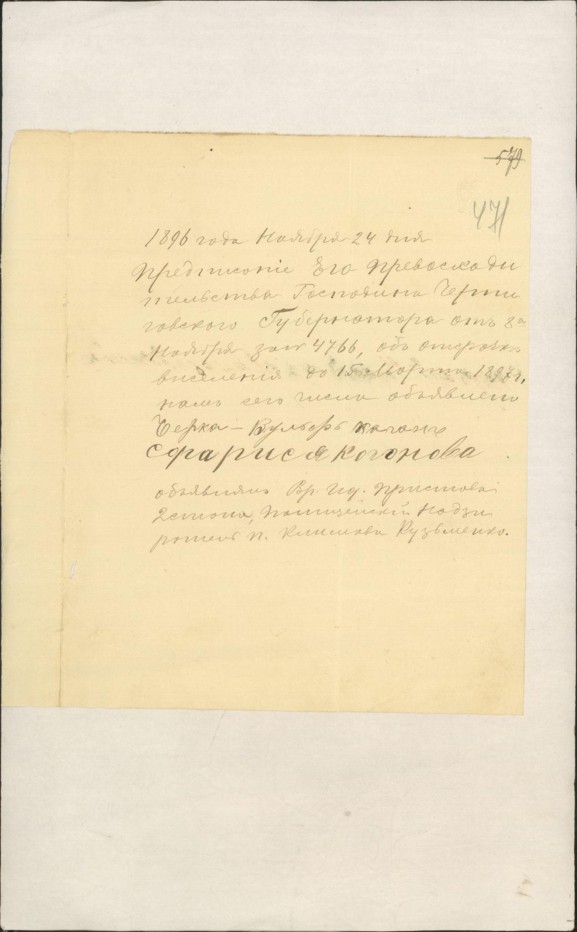 579
471
1896 года Ноября 24 дня
Предписаніе Его Превосходи
тельства Господина Черни
говскаго Губернатора отъ 8го
Ноября за № 4766, объ отсрочке
виселенія до 15 Марта 1897 г,
намъ сего числа объявлено
Берка-Вульфъ
объявилъ Вр. Ид. Пристова
2 стана, Полицейскій Надзи
ратель п. Климова Кузьменко.